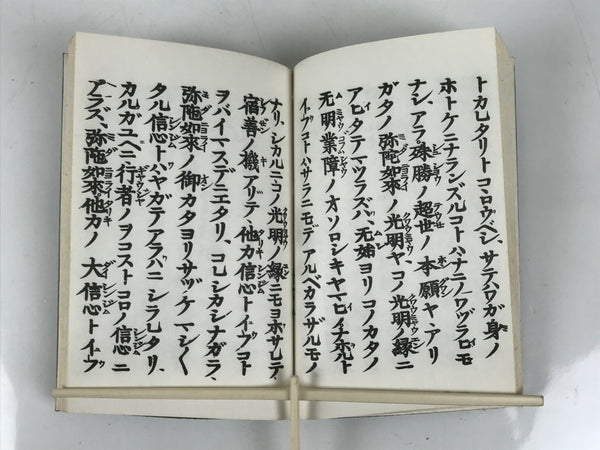 トカレタリトコヽロウベシ、サテハワガ身ノ
ホトケニナランズルコトハナニノワヅラヒモ
ナシ、アラ殊勝ノ超世ノ本願ヤ、アリ
ガタノ弥陀如來ノ光明ヤ、コノ光明ノ縁ニ
アヒタテマツラズハ、无始ヨリコノカタノ
无明業障ノオソロシキヤマヒノ
イフコトハサラニモテアルベカラザルモノ
ナリ、シカルニコノ光明ノ縁ニモヨホサレテ、
宿善ノ機アリテ、他力信心トイフコト
ヲバイマスデニエタリ、コレシカシナガラ、
弥陀如來ノ御カタヨリサヅケマシ〱
タル信心トハヤガテアラハニシラレタリ、
カルガユヘニ行者ノヲコストコロノ信心ニ
アラズ、弥陀如來他力ノ大信心トイフ